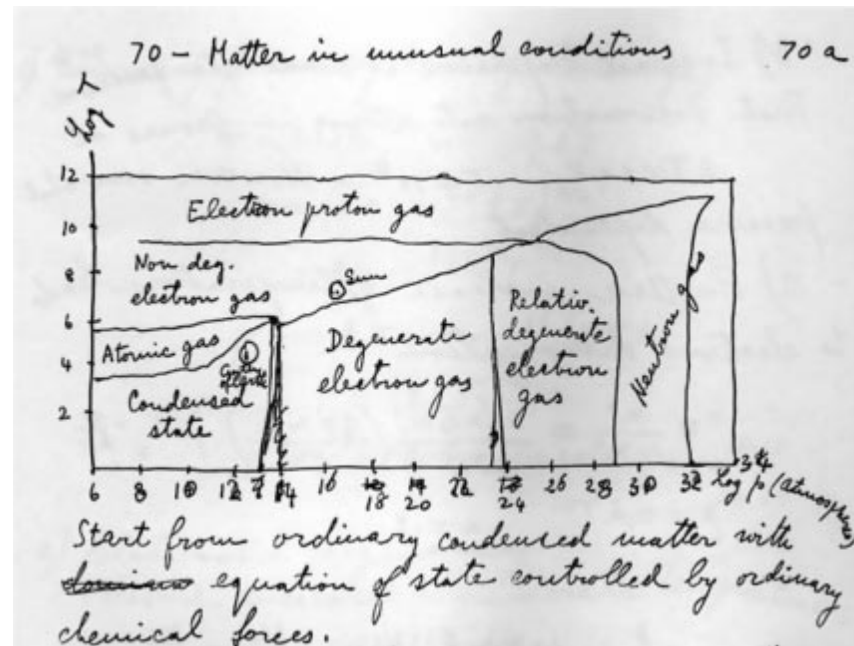 70 - Matter in unusual conditions 70 a
Log T
12
10
8
6
4
2
Electron proton gas
Non deg.
electron gas
Sun
Atomic gas
Condensed
state
Degenerate
electron gas
Relativ.
degenerate
electron
gas
Neutron gas
6 8 10 12 14 16 18 20 22 24 26 28 30 32 34 Log p (atmospheres)
Start from ordinary condensed matter with
equation of state controlled by ordinary
chemical forces.